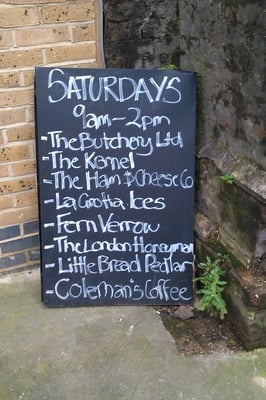 SATURDAYS
9am-2pm
-The Butchery Ltd
-The Kernel
-The Ham & Cheese Co
-La Grotta Ices
-Fern Verrow
-The London Honeyman
-Little Bread Pedlar
-Coleman's Coffee